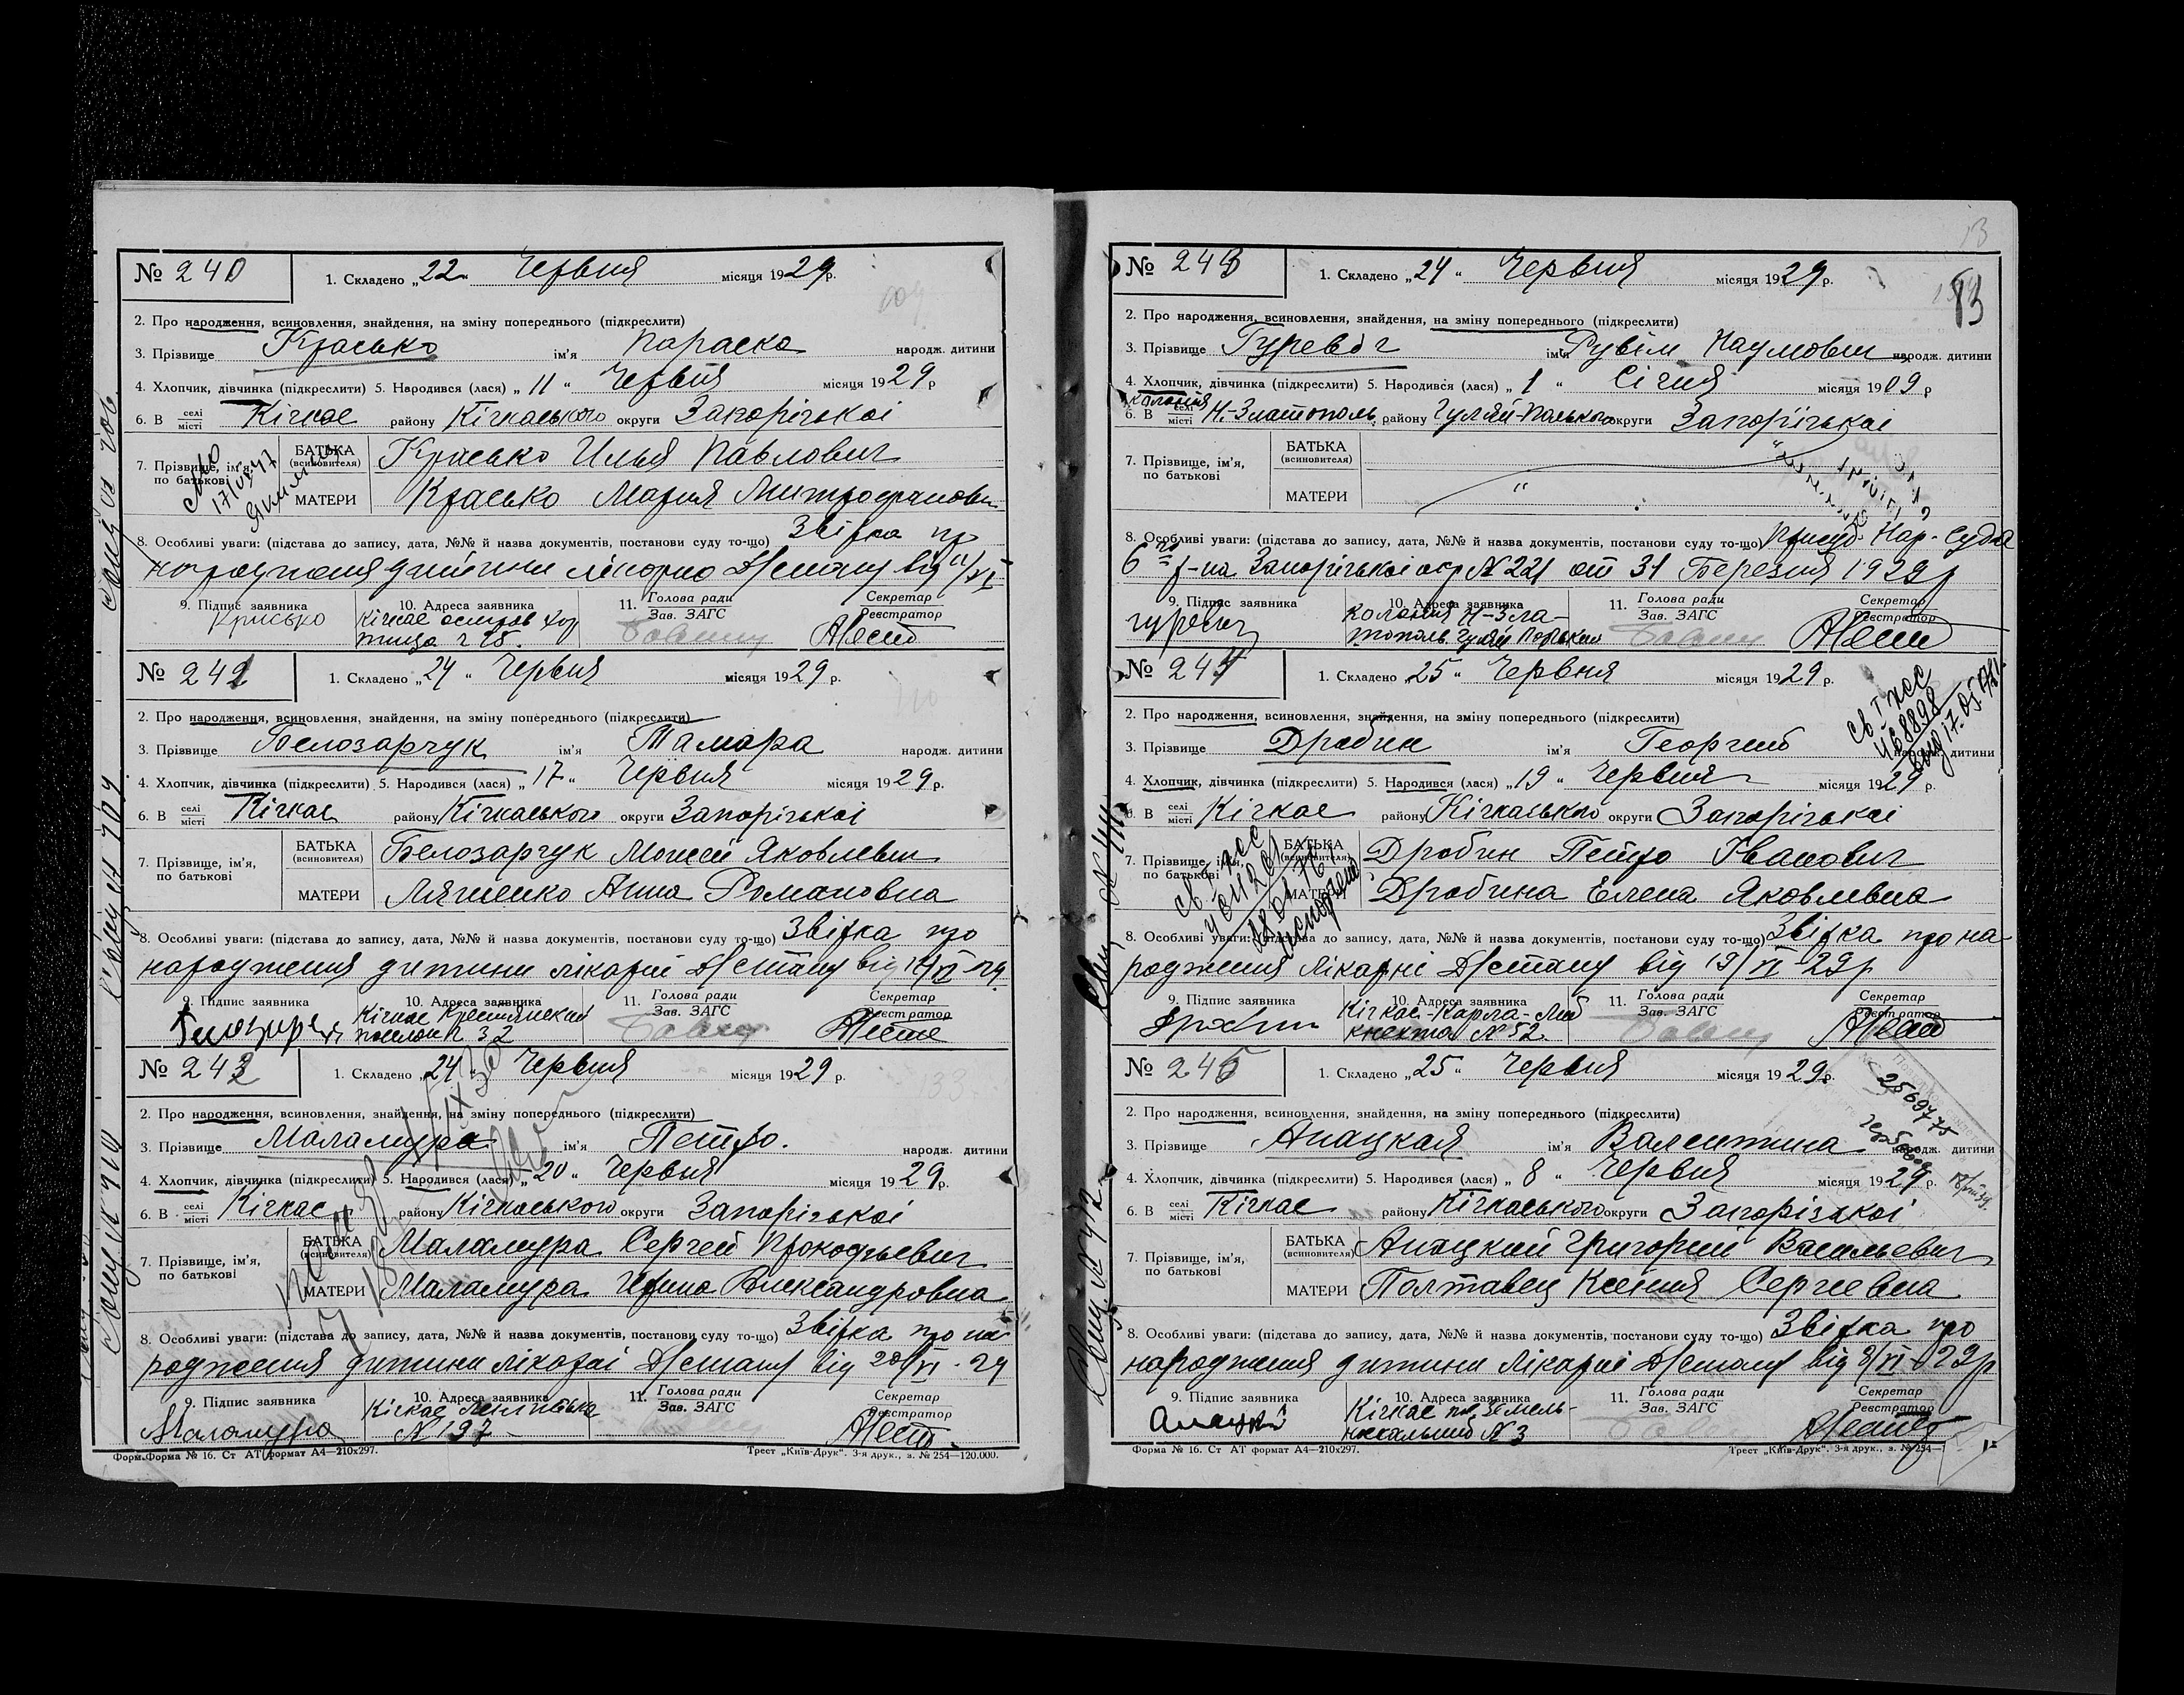 № 240
1. Складено „22“ Червня місяця 1929р.
2. Про народження, всиновлення, знайдення, на зміну попереднього (підкреслити)
3. Прізвище Красько ім'я Параска народж. дитини
4. Хлопчик, дівчинка (підкреслити) 5. Народився (лася) „11“ Червня місяця 1929 р
6. В селі місті Кічкас району Кічкаського округи Запорізькоі
7. Прізвище, ім'я, по батькові
БАТЬКА (всиновителя) Красько Илья Павлович
МАТЕРИ Красько Мария Митрофановн
8. Особливі уваги: (підстава до запису, дата, №№ й назва документів, постанови суду то-що) Звірка про
народження дитини лікарні від 11/VI
9. Підпис заявника Крисько
10. Адреса заявника Кічкас острів Хор
тица
11. Голова ради Зав. ЗАГС
Секретар Реєстратор
№ 241
1. Складено „24“ Червня місяця 1929 р.
2. Про народження, всиновлення, знайдення, на зміну попереднього (підкреслити)
3. Прізвище Белозарчук ім'я Тамара народж. дитини
4. Хлопчик, дівчинка (підкреслити) 5. Народився (лася) „17“ Червня місяця 1929 р.
6. В селі місті Кічкас району Кічкаського округи Запорізькоі
7. Прізвище, ім'я, по батькові
БАТЬКА (всиновителя) Белозарчук Моисей Яковлевич
МАТЕРИ Ляшенко Анна Романовна
8. Особливі уваги: (підстава до запису, дата, №№ й назва документів, постанови суду то-що) Звірка про
народження дитини лікарні від 17/VI-29
9. Підпис заявника
10. Адреса заявника Кічкас
поселок 32
11. Голова ради Зав. ЗАГС
Секретар Реєстратор
№ 242
1. Складено „24“ Червня місяця 1929 р.
2. Про народження, всиновлення, знайдення, на зміну попереднього (підкреслити)
3. Прізвище Маламура ім'я Петро. народж. дитини
4. Хлопчик, дівчинка (підкреслити) 5. Народився (лася) „20“ Червня місяця 1929р.
6. В селі місті Кічкас району Кічкаського округи Запорізькоі
7. Прізвище, ім'я, по батькові
БАТЬКА (всиновителя) Маламура Сергей Прокофьевич
МАТЕРИ Маламура Ирина Александровна
8. Особливі уваги: (підстава до запису, дата, №№ й назва документів, постанови суду то-що) Звірка про на
родження дитини лікарні від 20/VI-29
9. Підпис заявника Маламура
10. Адреса заявника Кічкас
№ 197
11. Голова ради Зав. ЗАГС
Секретар Реєстратор
Форма № 16. Ст АТ формат А4—210x297. Трест „Київ-Друк“. 3-я друк., з. № 254—120.000.
13
№ 243
1. Складено „24“ Червня місяця 1929 р.
2. Про народження, всиновлення, знайдення, на зміну попереднього (підкреслити)
3. Прізвище Гуревіч ім'я Рувім Наумович народж. дитини
4. Хлопчик, дівчинка (підкреслити) 5. Народився (лася) „1“ Січня місяця 1909 р
колонія
6. В селі місті Н.-Златополь району Гуляй-Польского округи Запорізькоі
7. Прізвище, ім'я, по батькові
БАТЬКА (всиновителя)
МАТЕРИ
8. Особливі уваги: (підстава до запису, дата, №№ й назва документів, постанови суду то-що) Нар. Суда
6 го р-на Запорізькоі окр № 221 от 31 Березня 1929 р
9. Підпис заявника
10. Адреса заявника Колония Н-Зла-
тополь Гуляй
11. Голова ради Зав. ЗАГС
Секретар Реєстратор
№ 244
1. Складено „25“ Червня місяця 1929 р.
2. Про народження, всиновлення, знайдення, на зміну попереднього (підкреслити)
3. Прізвище Дробин ім'я Георгий народж. дитини
4. Хлопчик, дівчинка (підкреслити) 5. Народився (лася) „19“ Червня місяця 1929 р.
6. В селі місті Кічкас району Кічкаського округи Запорізькоі
7. Прізвище, ім'я, по батькові
БАТЬКА (всиновителя) Дробин Петро Іванович
МАТЕРИ Дробина Елена Яковлевна
8. Особливі уваги: (підстава до запису, дата, №№ й назва документів, постанови суду то-що) Звірка про на
родження лікарні від 19/VI 29р
9. Підпис заявника
10. Адреса заявника Кічкас-Карла-Либ
кнехта № 52
11. Голова ради Зав. ЗАГС
Секретар Реєстратор
№ 245
1. Складено „25“ Червня місяця 1929 р.
2. Про народження, всиновлення, знайдення, на зміну попереднього (підкреслити)
3. Прізвище Анацкая ім'я Валентина народж. дитини
4. Хлопчик, дівчинка (підкреслити) 5. Народився (лася) „8“ Червня місяця 1929 р.
6. В селі місті Кічкас району Кічкаського округи Запорізькоі
7. Прізвище, ім'я, по батькові
БАТЬКА (всиновителя) Анацкий Григорий Васильевич
МАТЕРИ Полтавец Ксения Сергеевна
8. Особливі уваги: (підстава до запису, дата, №№ й назва документів, постанови суду то-що) Звірка про
народження дитини лікарні від 8/VI-29р
9. Підпис заявника
10. Адреса заявника Кічкас
№ 3
11. Голова ради Зав. ЗАГС
Секретар Реєстратор
Форма № 16. Ст АТ формат А4—210x297. Трест „Київ-Друк“. 3-я друк., з. № 254—